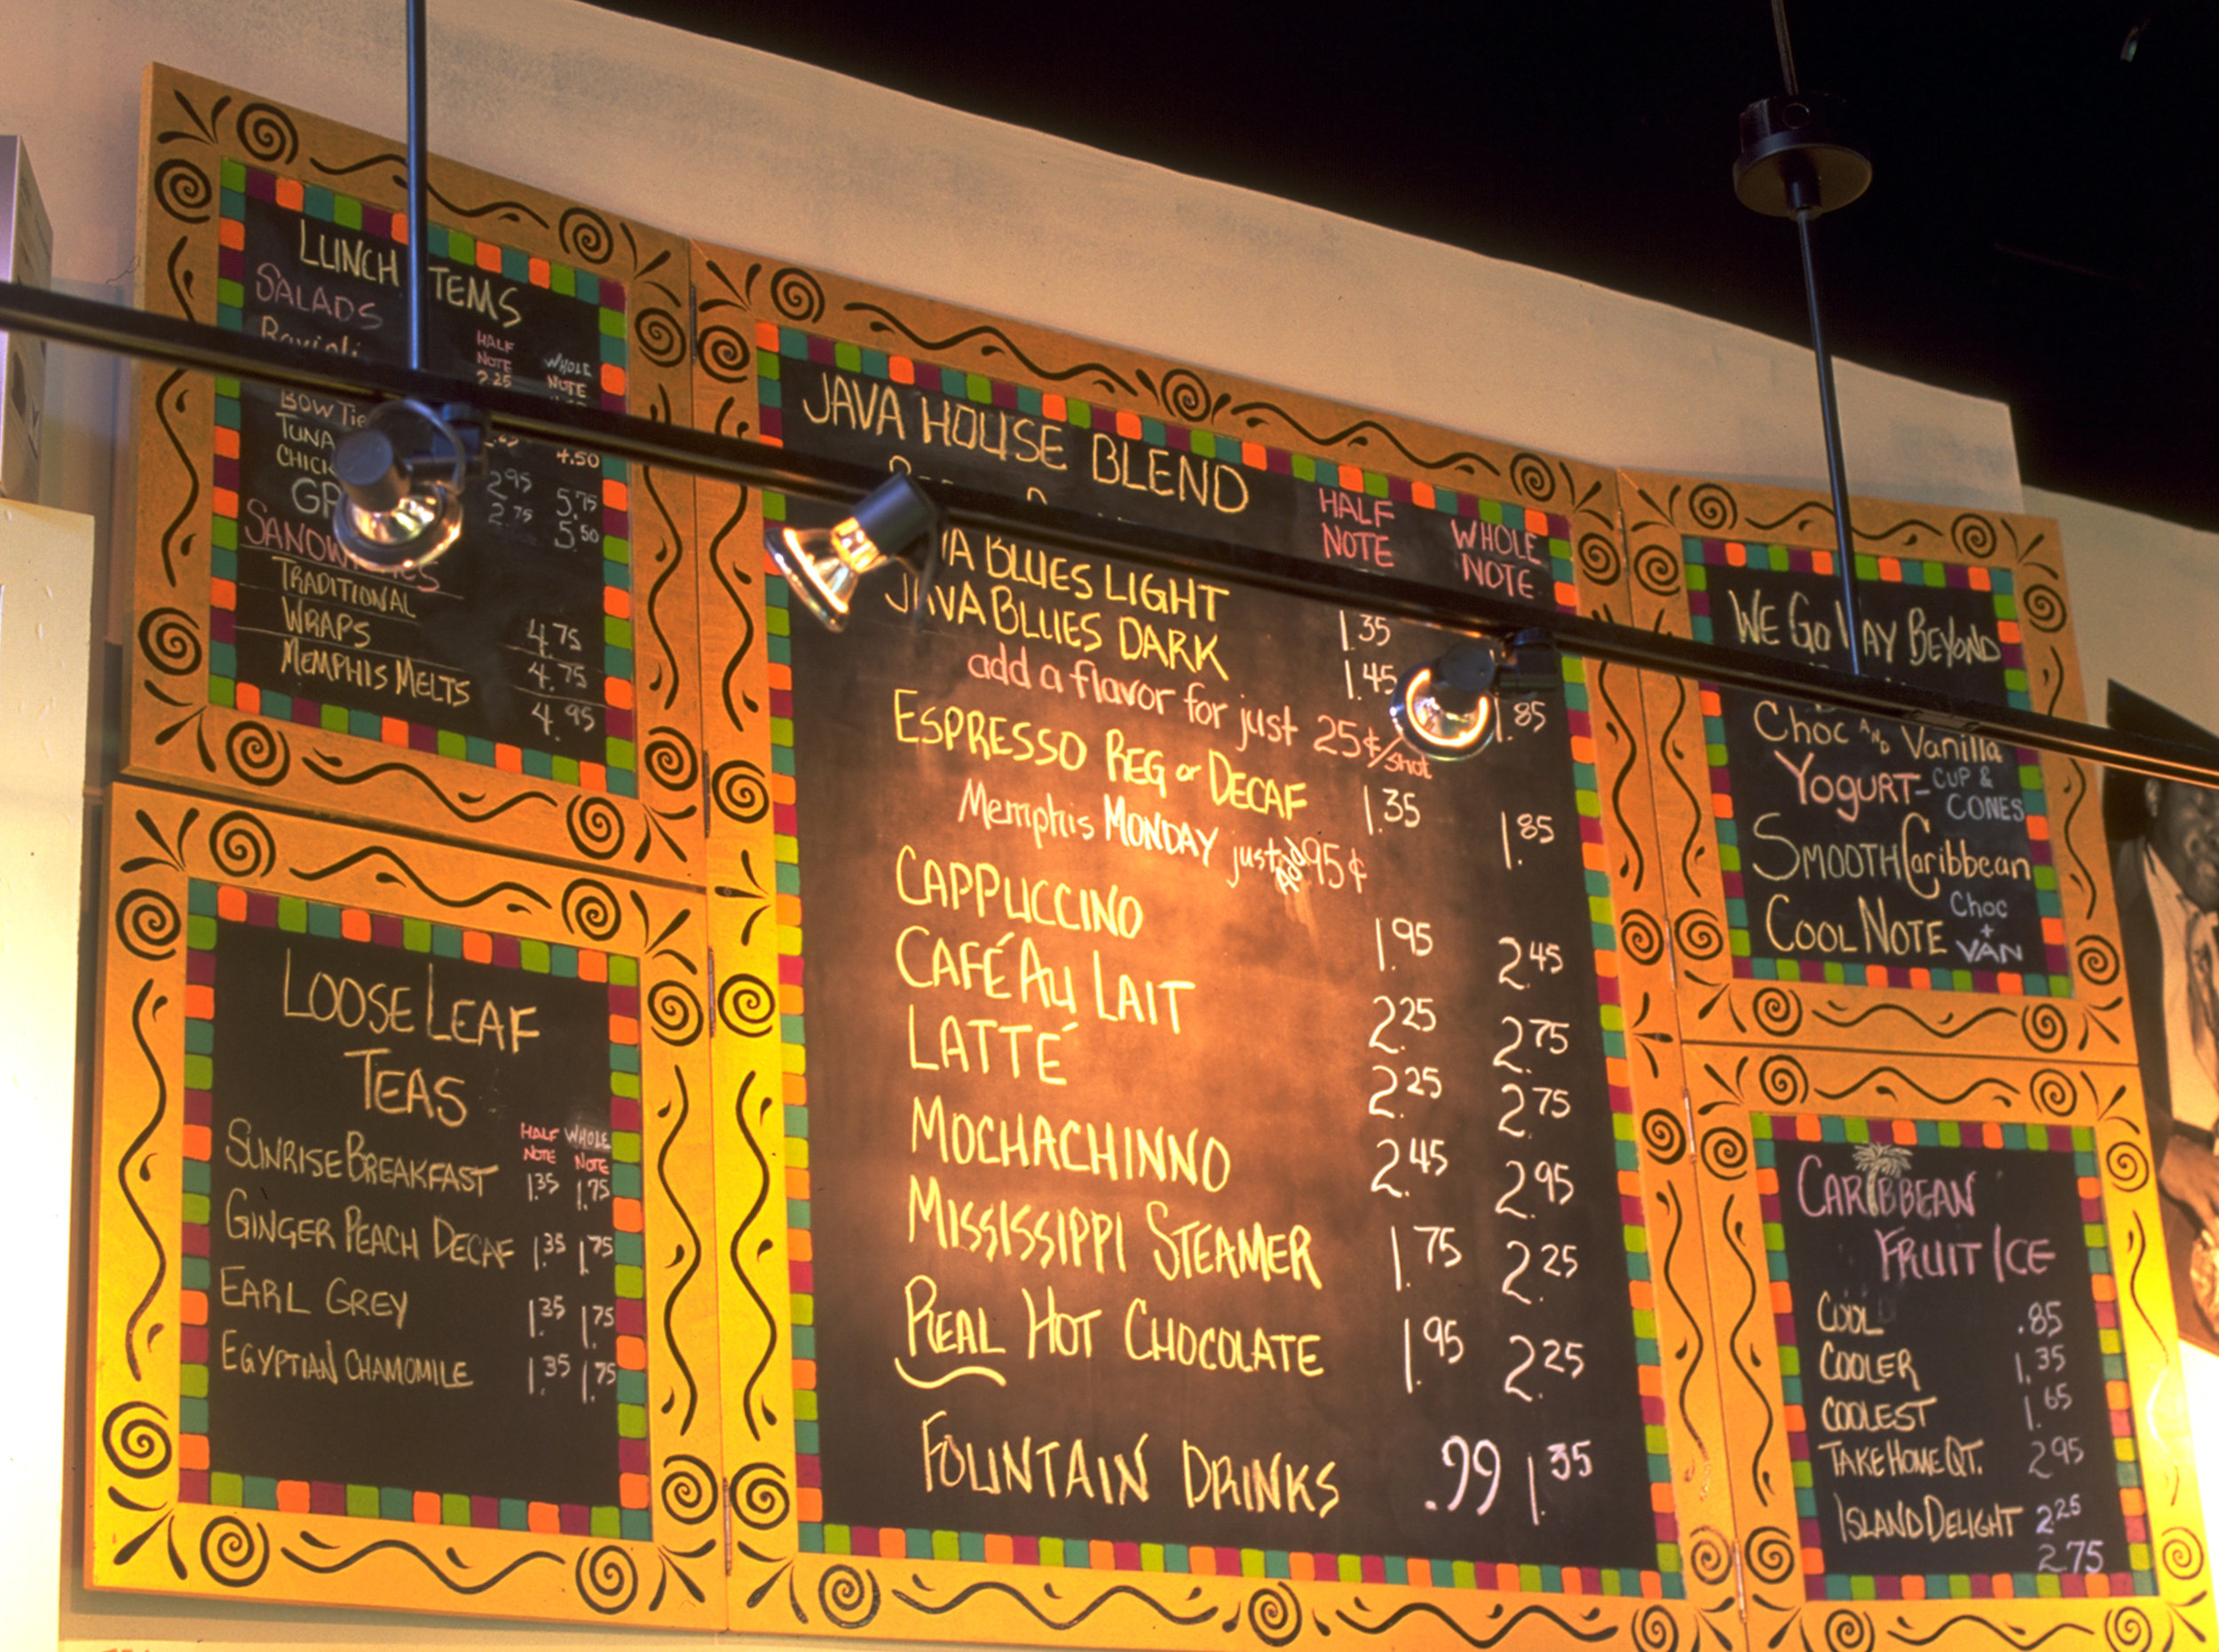 LUNCH TEMS
SALADS
Ravioli
HALF NOTE
WHOLE NOTE
2.25
BOW Tie
4.50
TUNA 2.95 5.75
CHICK 2.75 5.50
SANDWICHES
TRADITIONAL 4.75
WRAPS 4.75
MEMPHIS MELTS 4.95
LOOSE LEAF
TEAS
HALF NOTE WHOLE NOTE
SUNRISE BREAKFAST 1.35 1.75
GINGER PEACH DECAF 1.35 1.75
EARL GREY 1.35 1.75
EGYPTIAN CHAMOMILE 1.35 1.75
JAVA HOUSE BLEND
HALF NOTE
WHOLE NOTE
BLUES LIGHT 1.35
JAVA BLUES DARK 1.45 1.85
add a flavor for just 25¢/shot
ESPRESSO REG or DECAF 1.35 1.85
Memphis MONDAY just Add 95¢
CAPPUCCINO 1.95 2.45
CAFÉ AU LAIT 2.25 2.75
LATTÉ 2.25 2.75
MOCHACHINNO 2.45 2.95
MISSISSIPPI STEAMER 1.75 2.25
REAL HOT CHOCOLATE 1.95 2.25
FOUNTAIN DRINKS .99 1.35
WE GO WAY BEYOND
Choc AND Vanilla
YOGURT - CUP & CONES
SMOOTH Caribbean
COOL NOTE Choc + VAN
CARIBBEAN
FRUIT ICE
COOL .85
COOLER 1.35
COOLEST 1.65
TAKE HOME QT. 2.95
ISLAND DELIGHT 2.25
2.75